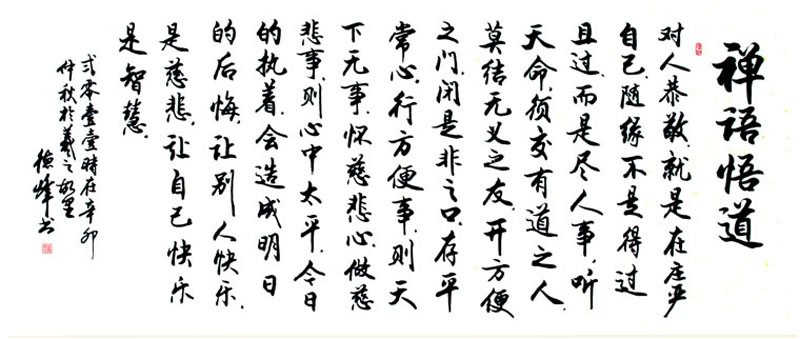 禅语悟道
对人恭敬,就是在庄严
自己,随缘不是得过
且过,而是尽人事,听
天命,须交有道之人,
莫结无义之友,开方便
之门,闭是非之口,存平
常心,行方便事,则天
下无事,怀慈悲心,做慈
悲事,则心中太平,今日
的执着,会造成明日
的后悔,让别人快乐,
是慈悲,让自己快乐
是智慧.
弍零壹壹時在辛卯
仲秋於羲之故里
德峰书